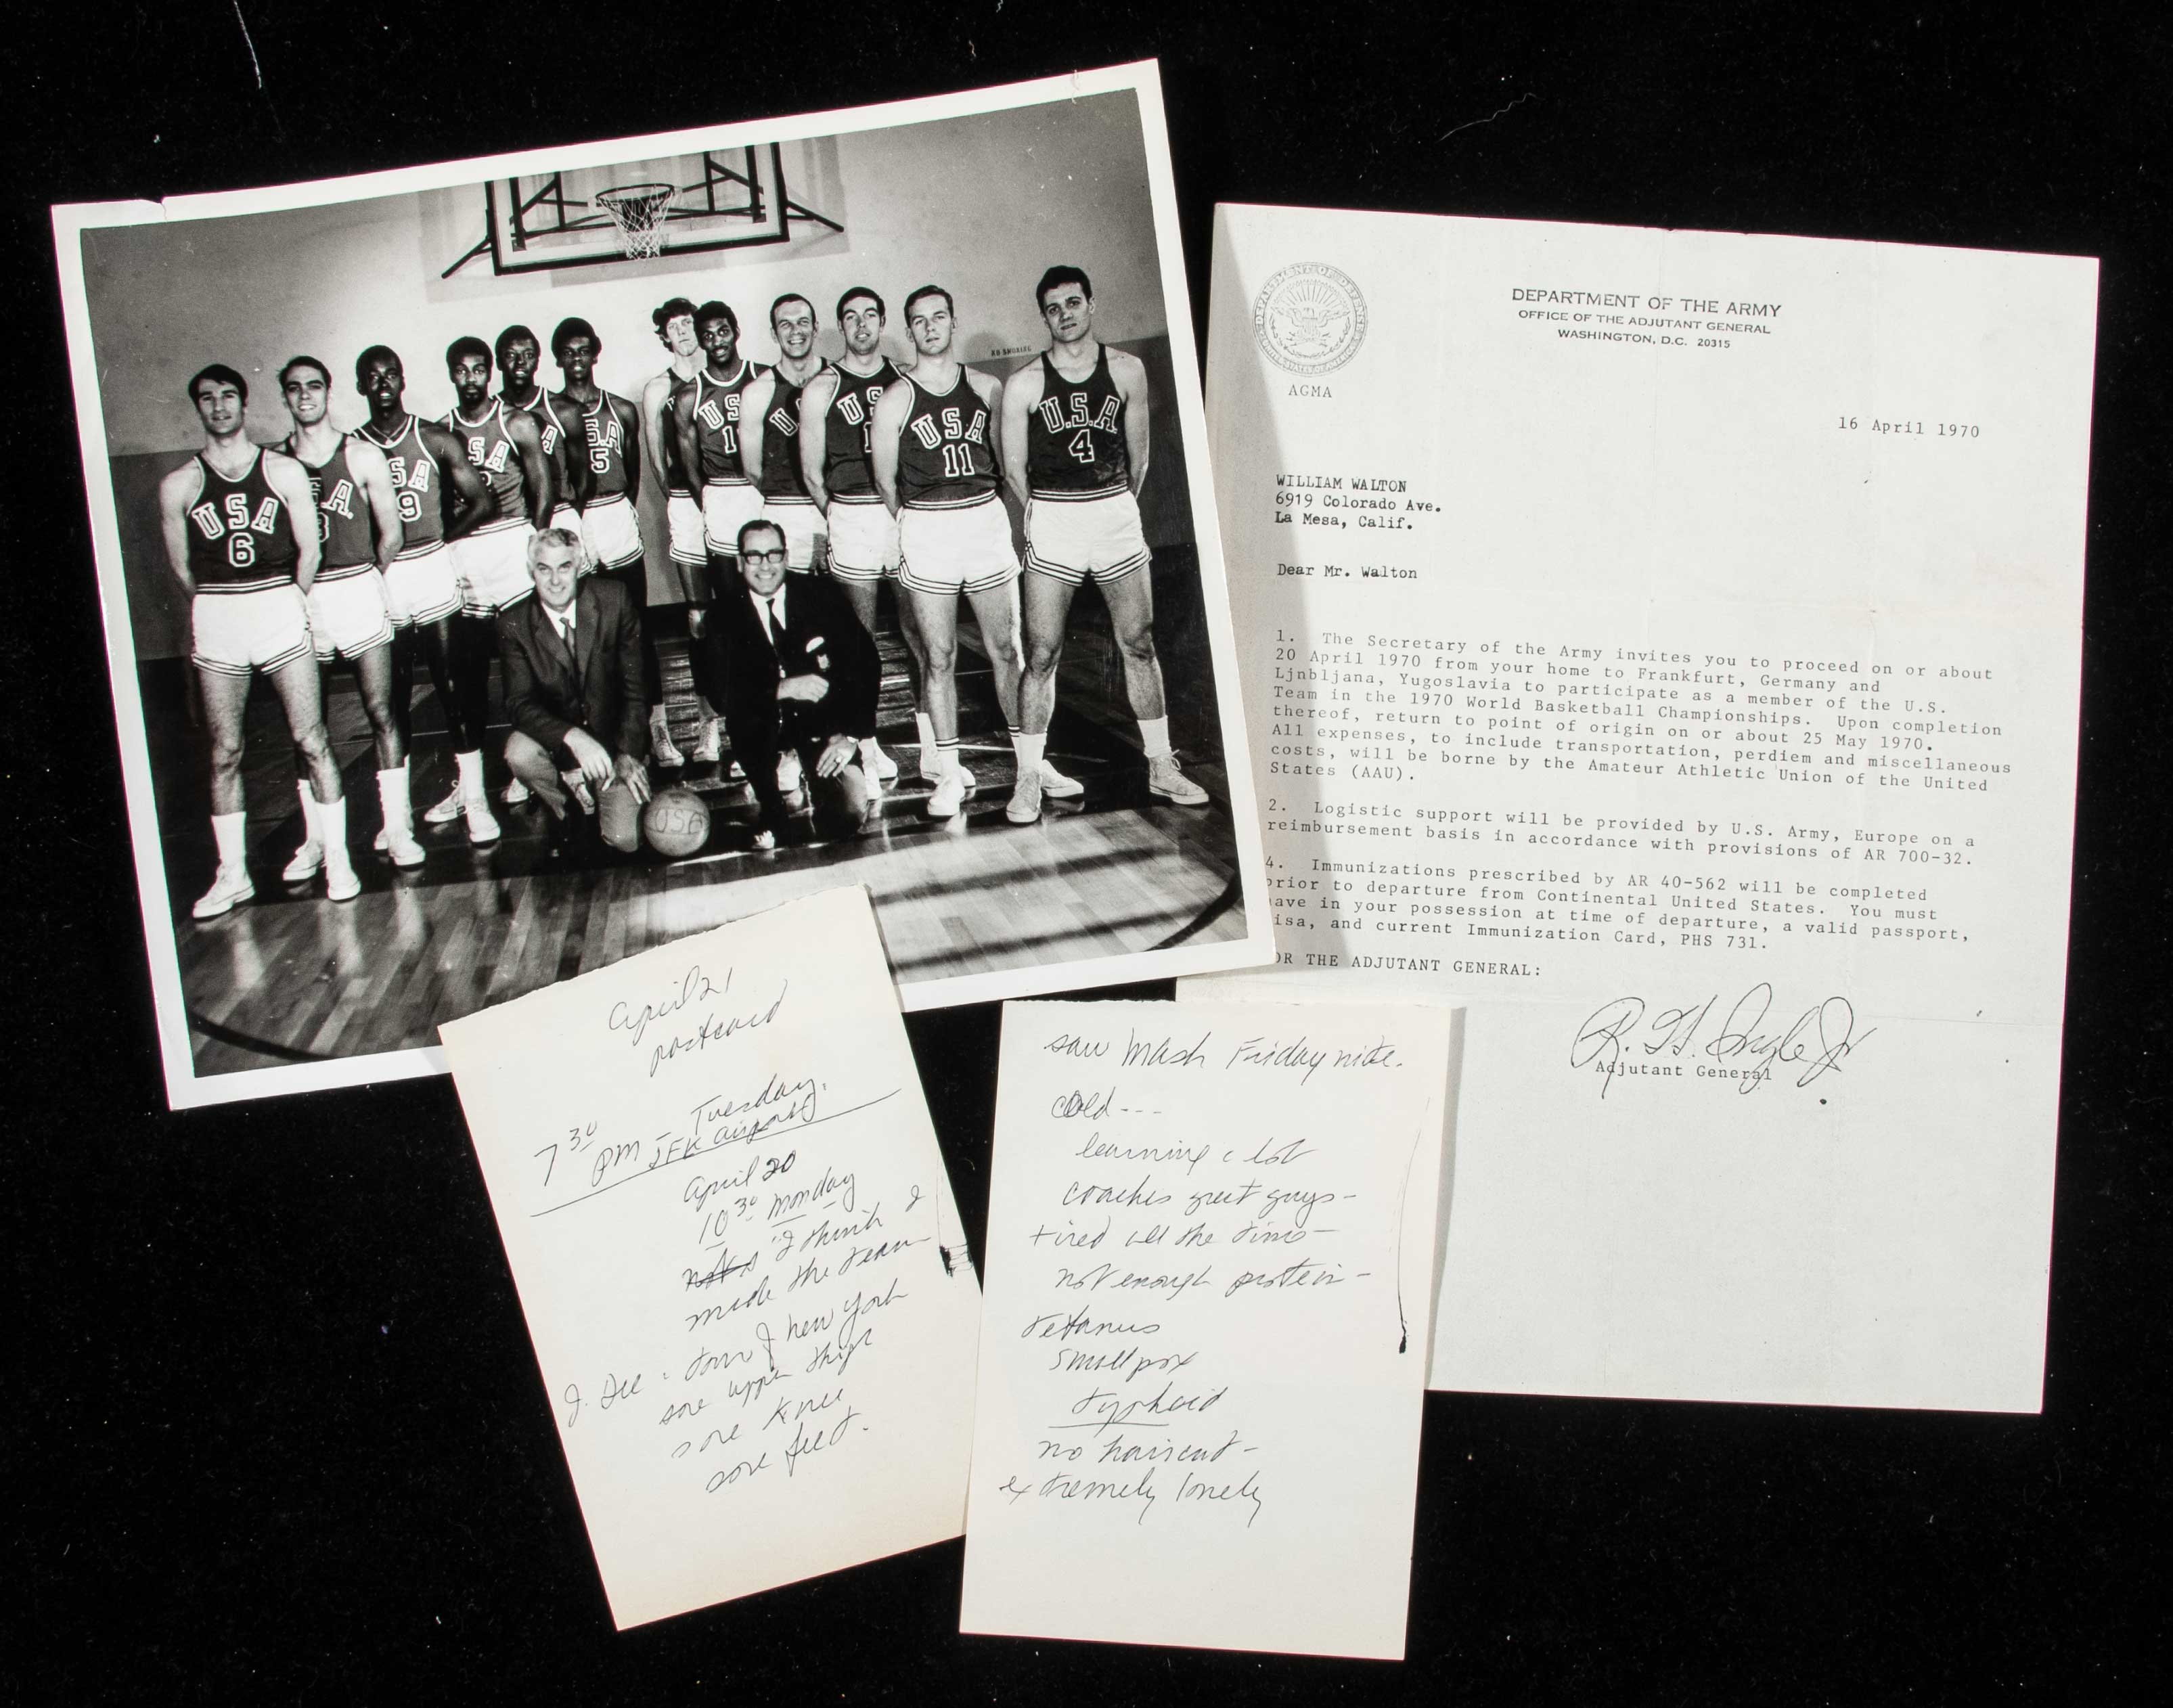 NO SMOKING
USA
6
A.
SA
9
SA
A
SA
5
US
1
U
US
1
USA
11
U.S.A.
4
USA
DEPARTMENT OF THE ARMY
OFFICE OF THE ADJUTANT GENERAL
WASHINGTON, D.C. 20315
AGMA
16 April 1970
WILLIAM WALTON
6919 Colorado Ave.
La Mesa, Calif.
Dear Mr. Walton
1. The Secretary of the Army invites you to proceed on or about
20 April 1970 from your home to Frankfurt, Germany and
Ljnbljana, Yugoslavia to participate as a member of the U.S.
Team in the 1970 World Basketball Championships. Upon completion
thereof, return to point of origin on or about 25 May 1970.
All expenses, to include transportation, perdiem and miscellaneous
costs, will be borne by the Amateur Athletic Union of the United
States (AAU).
2. Logistic support will be provided by U.S. Army, Europe on a
reimbursement basis in accordance with provisions of AR 700-32.
4. Immunizations prescribed by AR 40-562 will be completed
prior to departure from Continental United States. You must
ave in your possession at time of departure, a valid passport,
isa, and current Immunization Card, PHS 731.
OR THE ADJUTANT GENERAL:
Adjutant General
April 21
postcard
Tuesday,
7 30 pm - JFK airport
April 20
10 30 Monday
"I think I
made the team
New York
sore upper thigh
sore knee
sore feet.
saw Mash Friday nite.
cold ---
learning a lot
coaches great guys -
tired all the time -
not enough protein -
tetanus
small pox
typhoid
no haircut -
extremely lonely